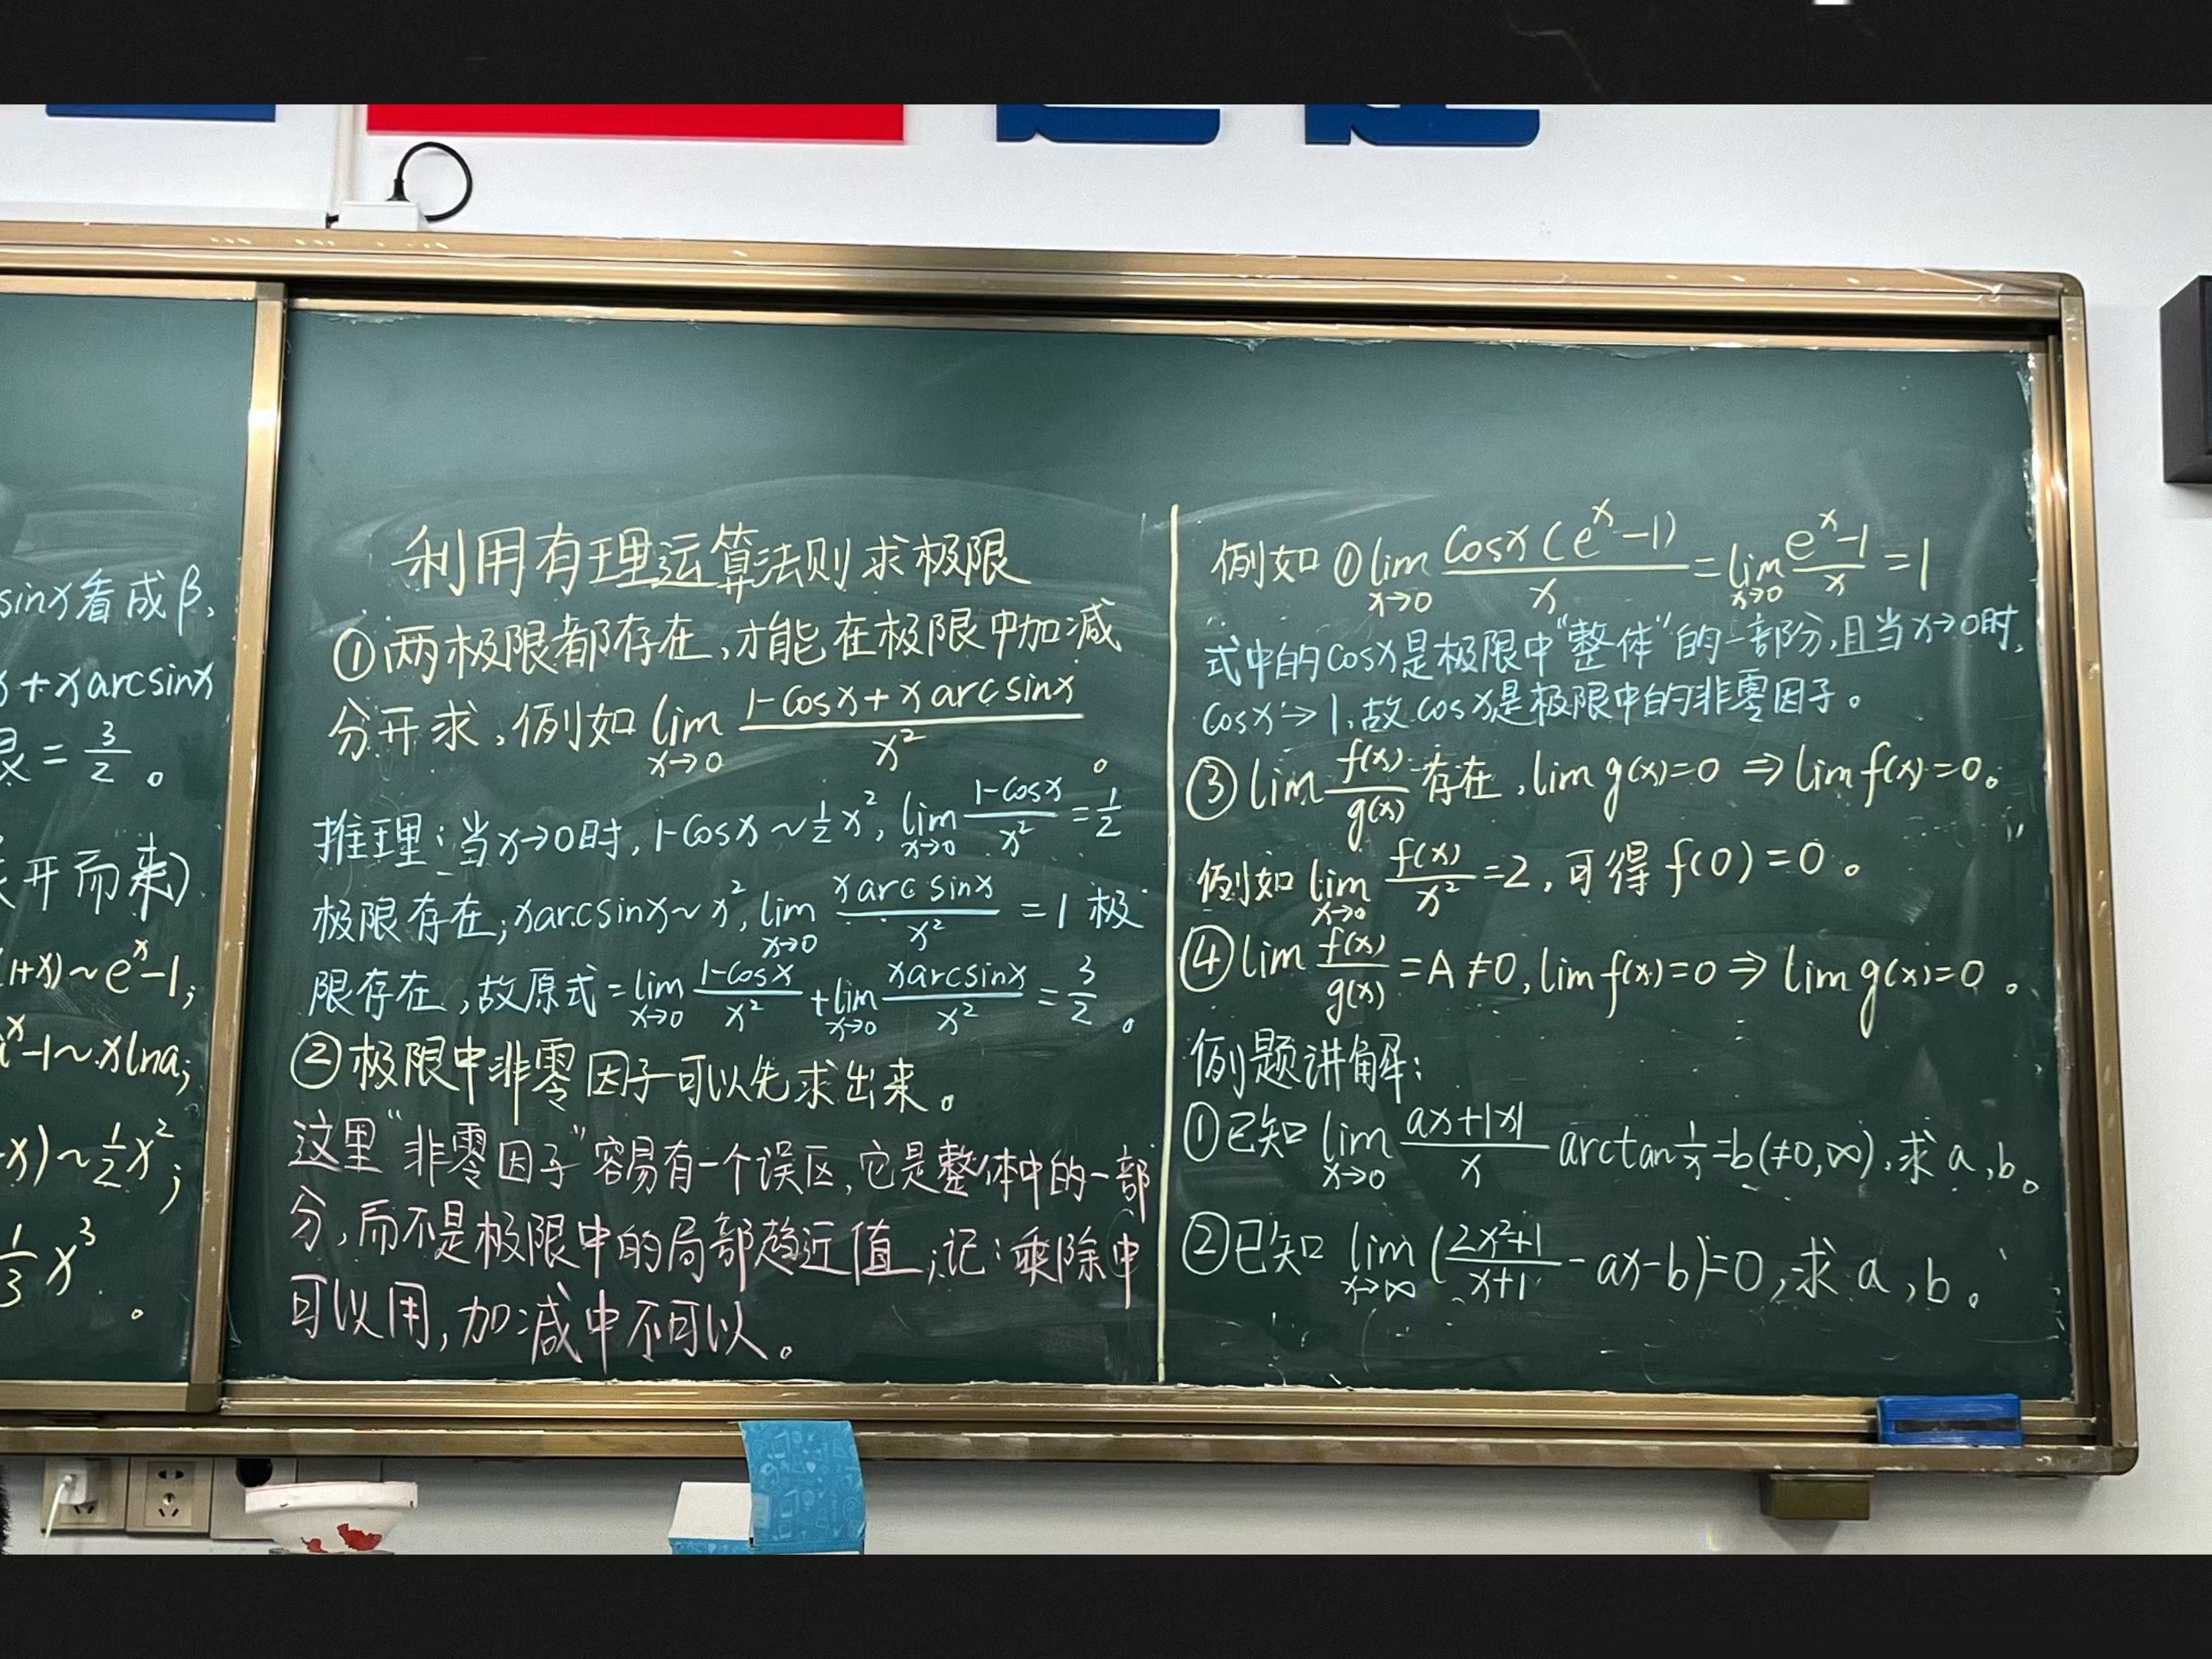 sinx看成β,
x+xarcsinx
= 3/2 。
开而来)
1+x)~e^x-1;
a^x-1~xlna;
x)~1/2 x^2;
1/3 x^3 。
利用有理运算法则求极限
①两极限都存在,才能在极限中加减
分开求,例如 lim x→0 (1-cosx+xarcsinx)/x^2 。
推理:当x→0时,1-cosx~1/2 x^2, lim x→0 (1-cosx)/x^2 = 1/2
极限存在;xarcsinx~x^2, lim x→0 (xarcsinx)/x^2 = 1 极
限存在,故原式= lim x→0 (1-cosx)/x^2 + lim x→0 (xarcsinx)/x^2 = 3/2 。
②极限中非零因子可以先求出来。
这里“非零因子”容易有一个误区,它是整体中的一部
分,而不是极限中的局部趋近值;记:乘除中
可以用,加减中不可以。
例如 ① lim x→0 cosx(e^x-1)/x = lim x→0 (e^x-1)/x = 1
式中的cosx是极限中“整体”的一部分,且当x→0时,
cosx→1,故cosx是极限中的非零因子。
③ lim f(x)/g(x) 存在, lim g(x)=0 ⇒ lim f(x)=0。
例如 lim x→0 f(x)/x^2 = 2,可得 f(0)=0 。
④ lim f(x)/g(x) = A≠0, lim f(x)=0 ⇒ lim g(x)=0 。
例题讲解:
①已知 lim x→0 (ax+|x|)/x arctan 1/x = b(≠0,∞),求a,b。
②已知 lim x→∞ ((2x^2+1)/(x+1) - ax-b)=0,求a,b。